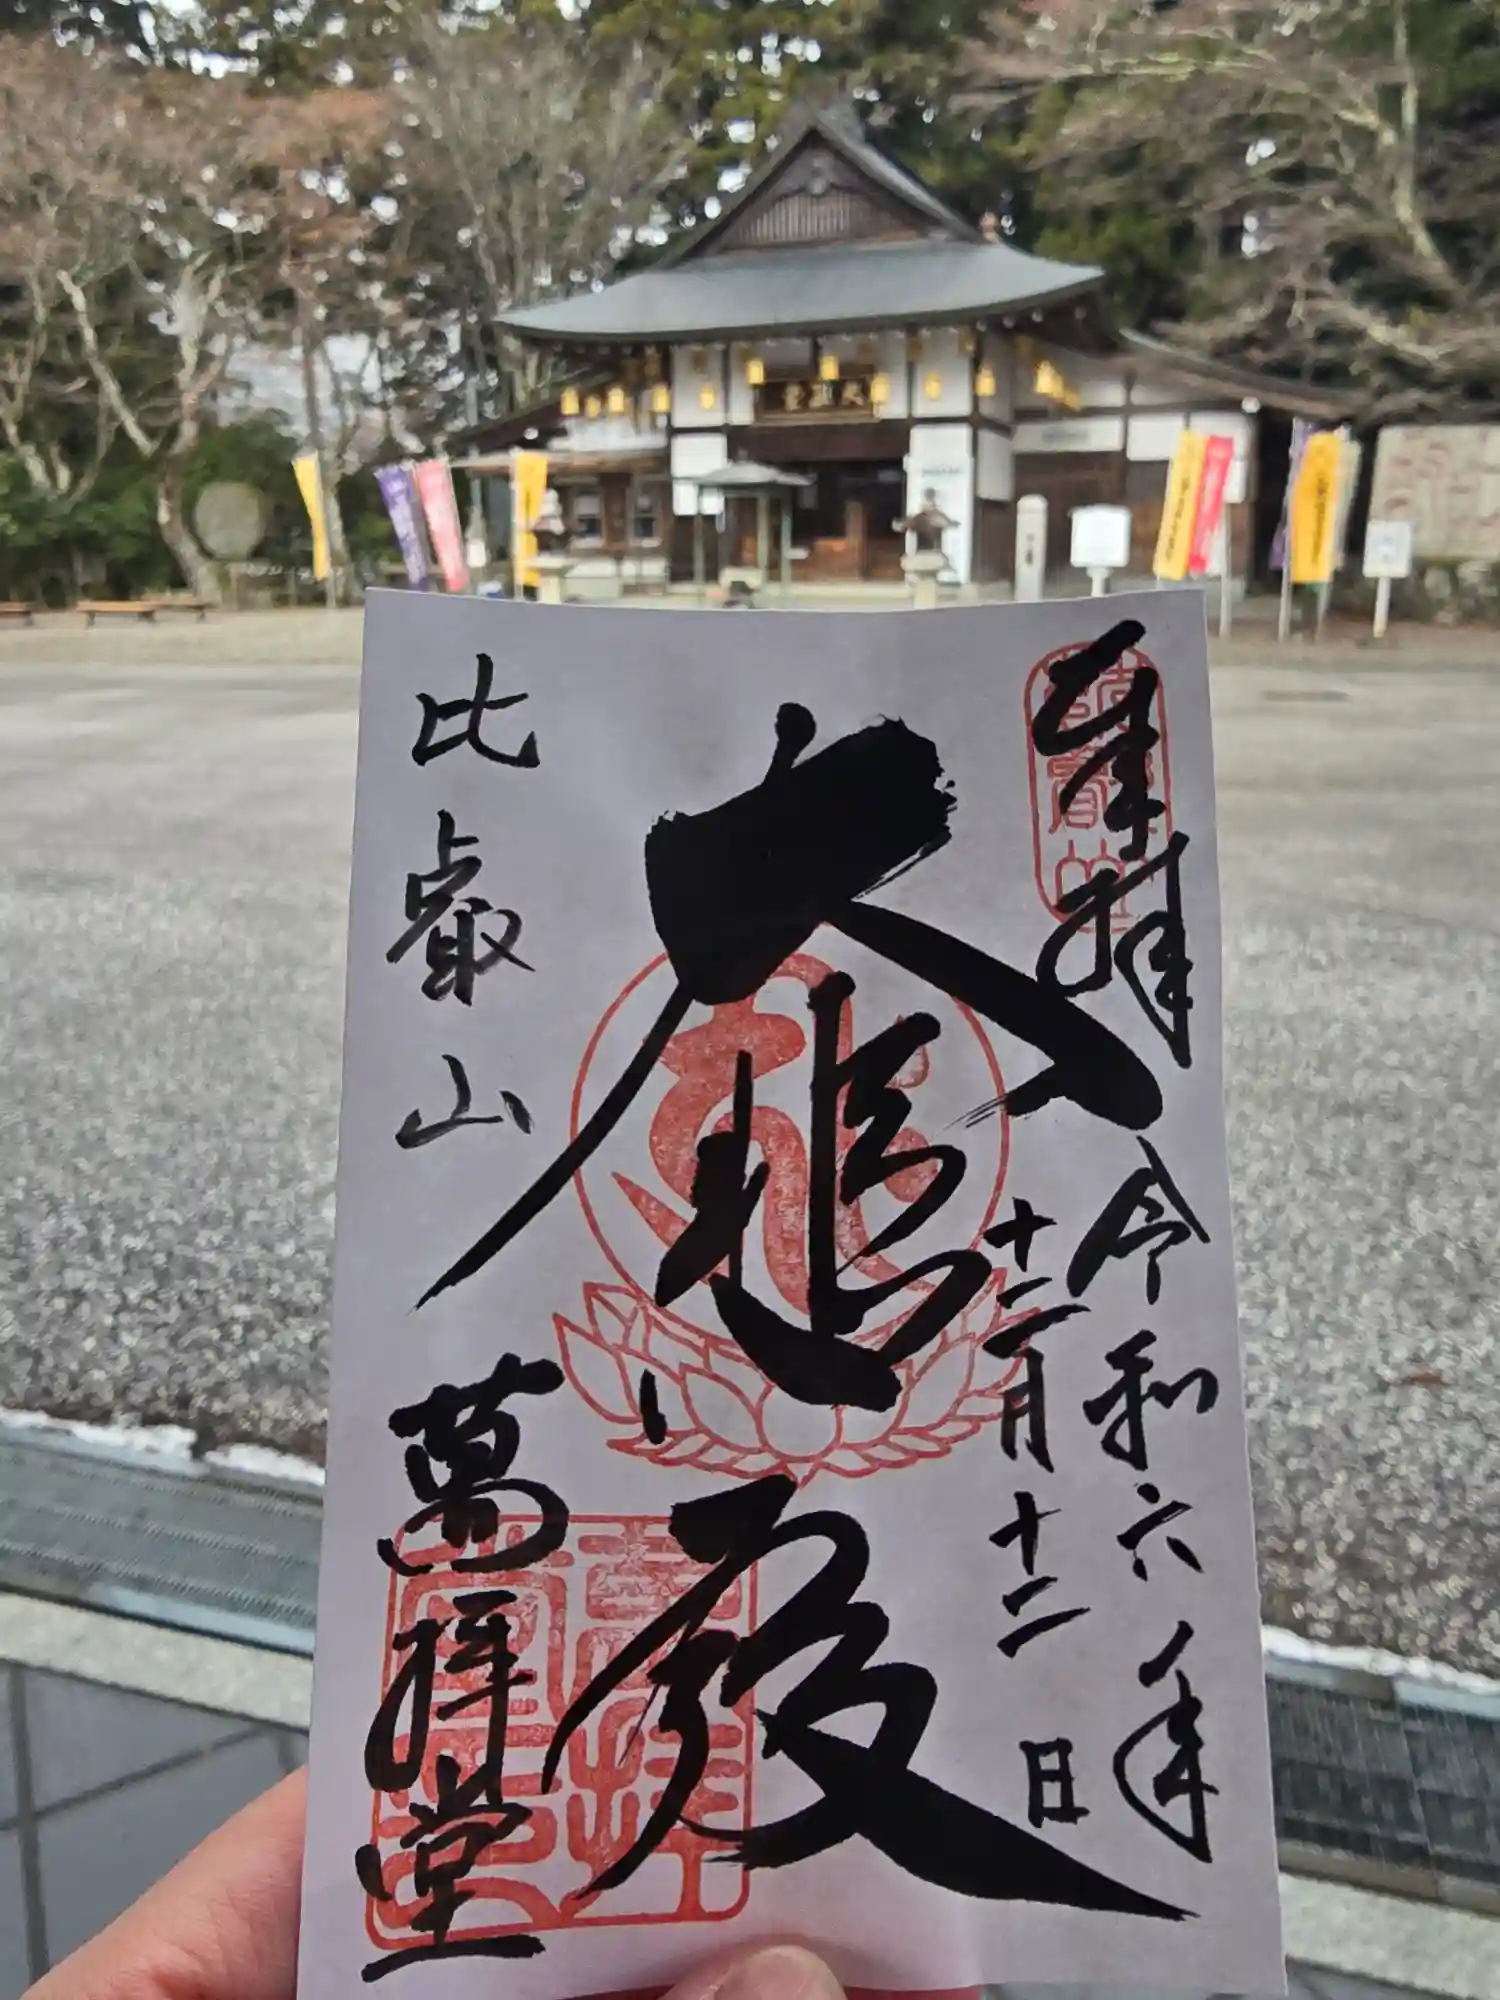 大黒堂
奉拝
令和六年
十二月十二日
大悲殿
比叡山
萬拝堂